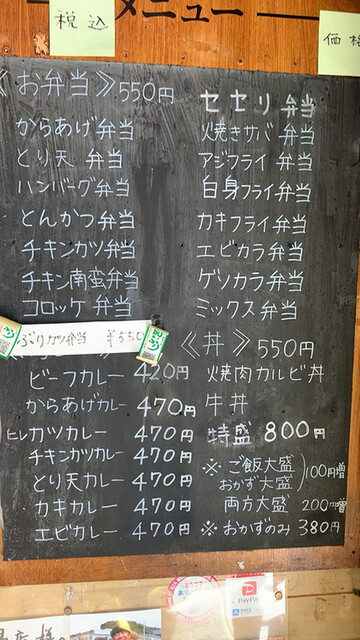 メニュー
税込
価格
《お弁当》550円
からあげ弁当
とり天 弁当
ハンバーグ弁当
とんかつ弁当
チキンカツ弁当
チキン南蛮弁当
コロッケ 弁当
ぶりカツ弁当 ¥550
ビーフカレー 420円
からあげカレー 470円
ヒレカツカレー 470円
チキンカツカレー 470円
とり天カレー 470円
カキカレー 470円
エビカレー 470円
セセリ弁当
焼きサバ弁当
アジフライ弁当
白身フライ弁当
カキフライ弁当
エビカラ弁当
ゲソカラ弁当
ミックス弁当
《丼》550円
焼肉カルビ丼
牛丼
特盛 800円
※ご飯大盛
おかず大盛 100円増
両方大盛 200円増
※おかずのみ 380円
PayPay